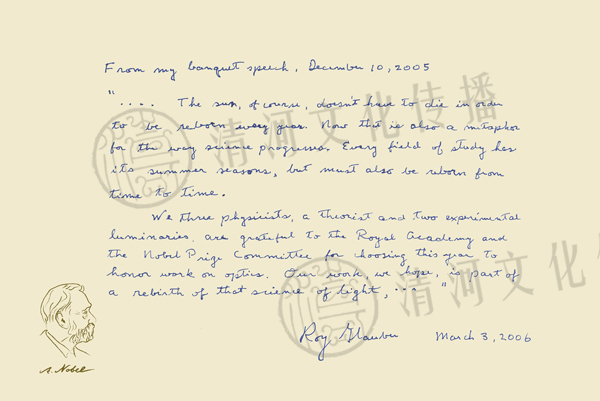 From my banquet speech, December 10, 2005
".... The sun, of course, doesn't have to die in order
to be reborn every year. Now that is also a metaphor
for the way science progresses. Every field of study has
its summer seasons, but must also be reborn from
time to time.
We three physicists, a theorist and two experimental
luminaries, are grateful to the Royal Academy and
the Nobel Prize Committee for choosing this year to
honor work on optics. Our work, we hope, is part of
a rebirth of that science of light, ... "
Roy Glauber March 3, 2006
A. Nobel
清河文化传播
清河文化传